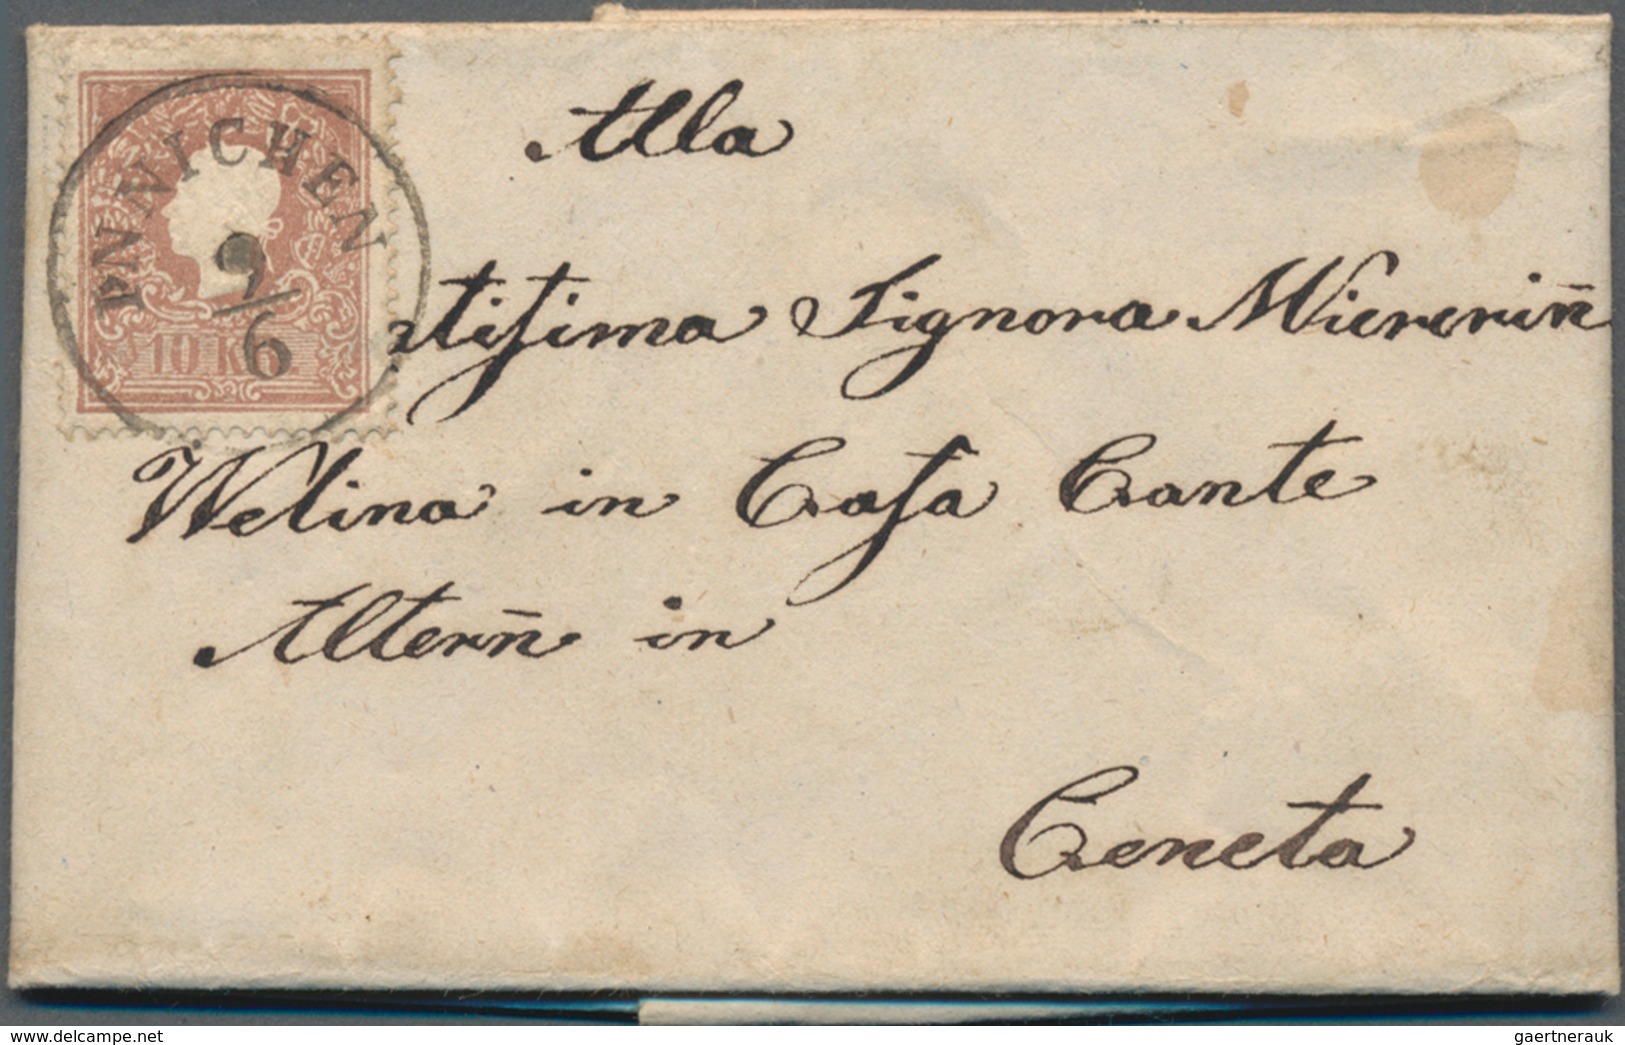 INNICHEN
9/6
10 Kr.
Alla
stisima Signora Miererin̄
Welina in Casa Cante
Altern̄ in
Ceneta
www.delcampe.net
gaertnerauk